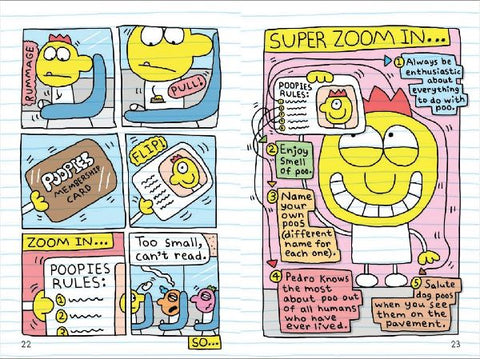 RUMMAGE
PULL!
POOPIES
MEMBERSHIP
CARD
FLIP!
ZOOM IN...
POOPIES
RULES:
1
2
3
Too small,
can't read.
SO...
22
SUPER ZOOM IN...
POOPIES
RULES:
1 Always be
enthusiastic
about
everything
to do with
poo.
2 Enjoy
smell
of poo.
3 Name
your
own
poos
(different
name for
each one).
4 Pedro knows
the most
about poo out
of all humans
who have
ever lived.
5 Salute
dog poos
when you see
them on the
pavement.
23